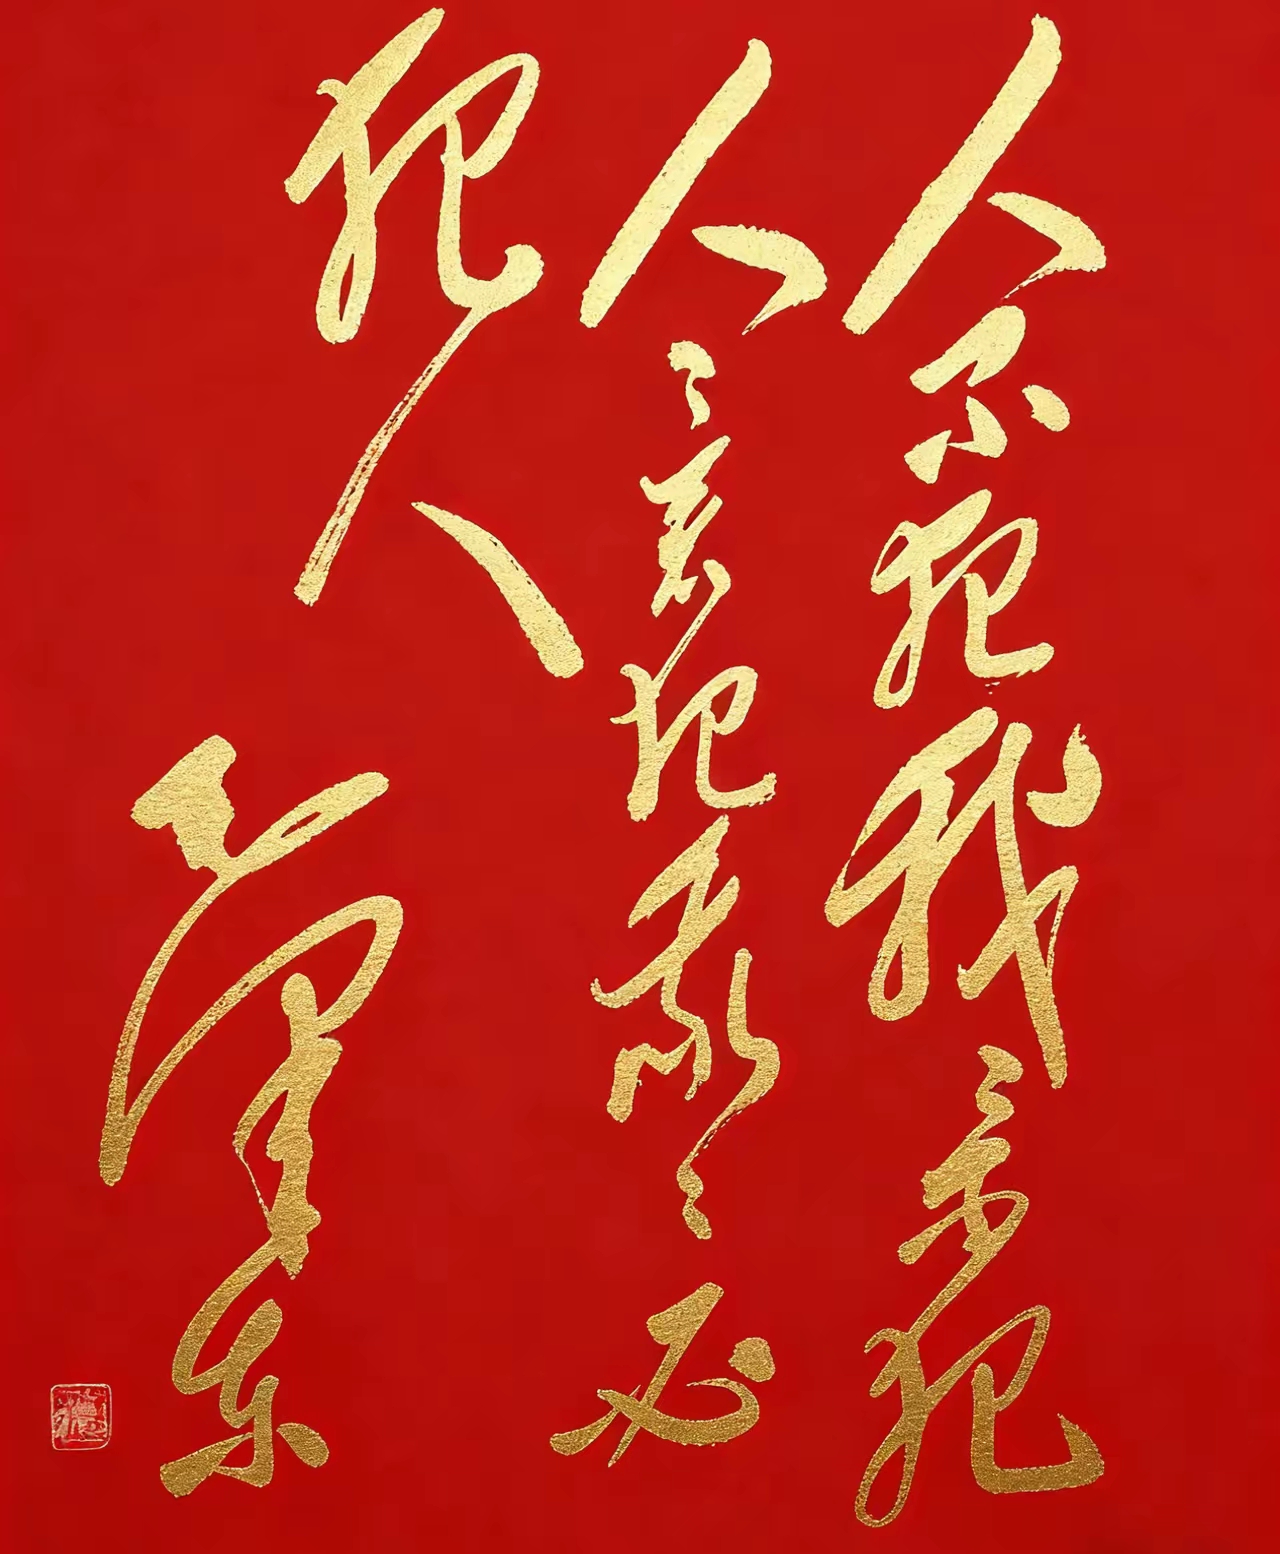 人不犯我〻不犯
人〻若犯我〻必
犯人
毛泽东